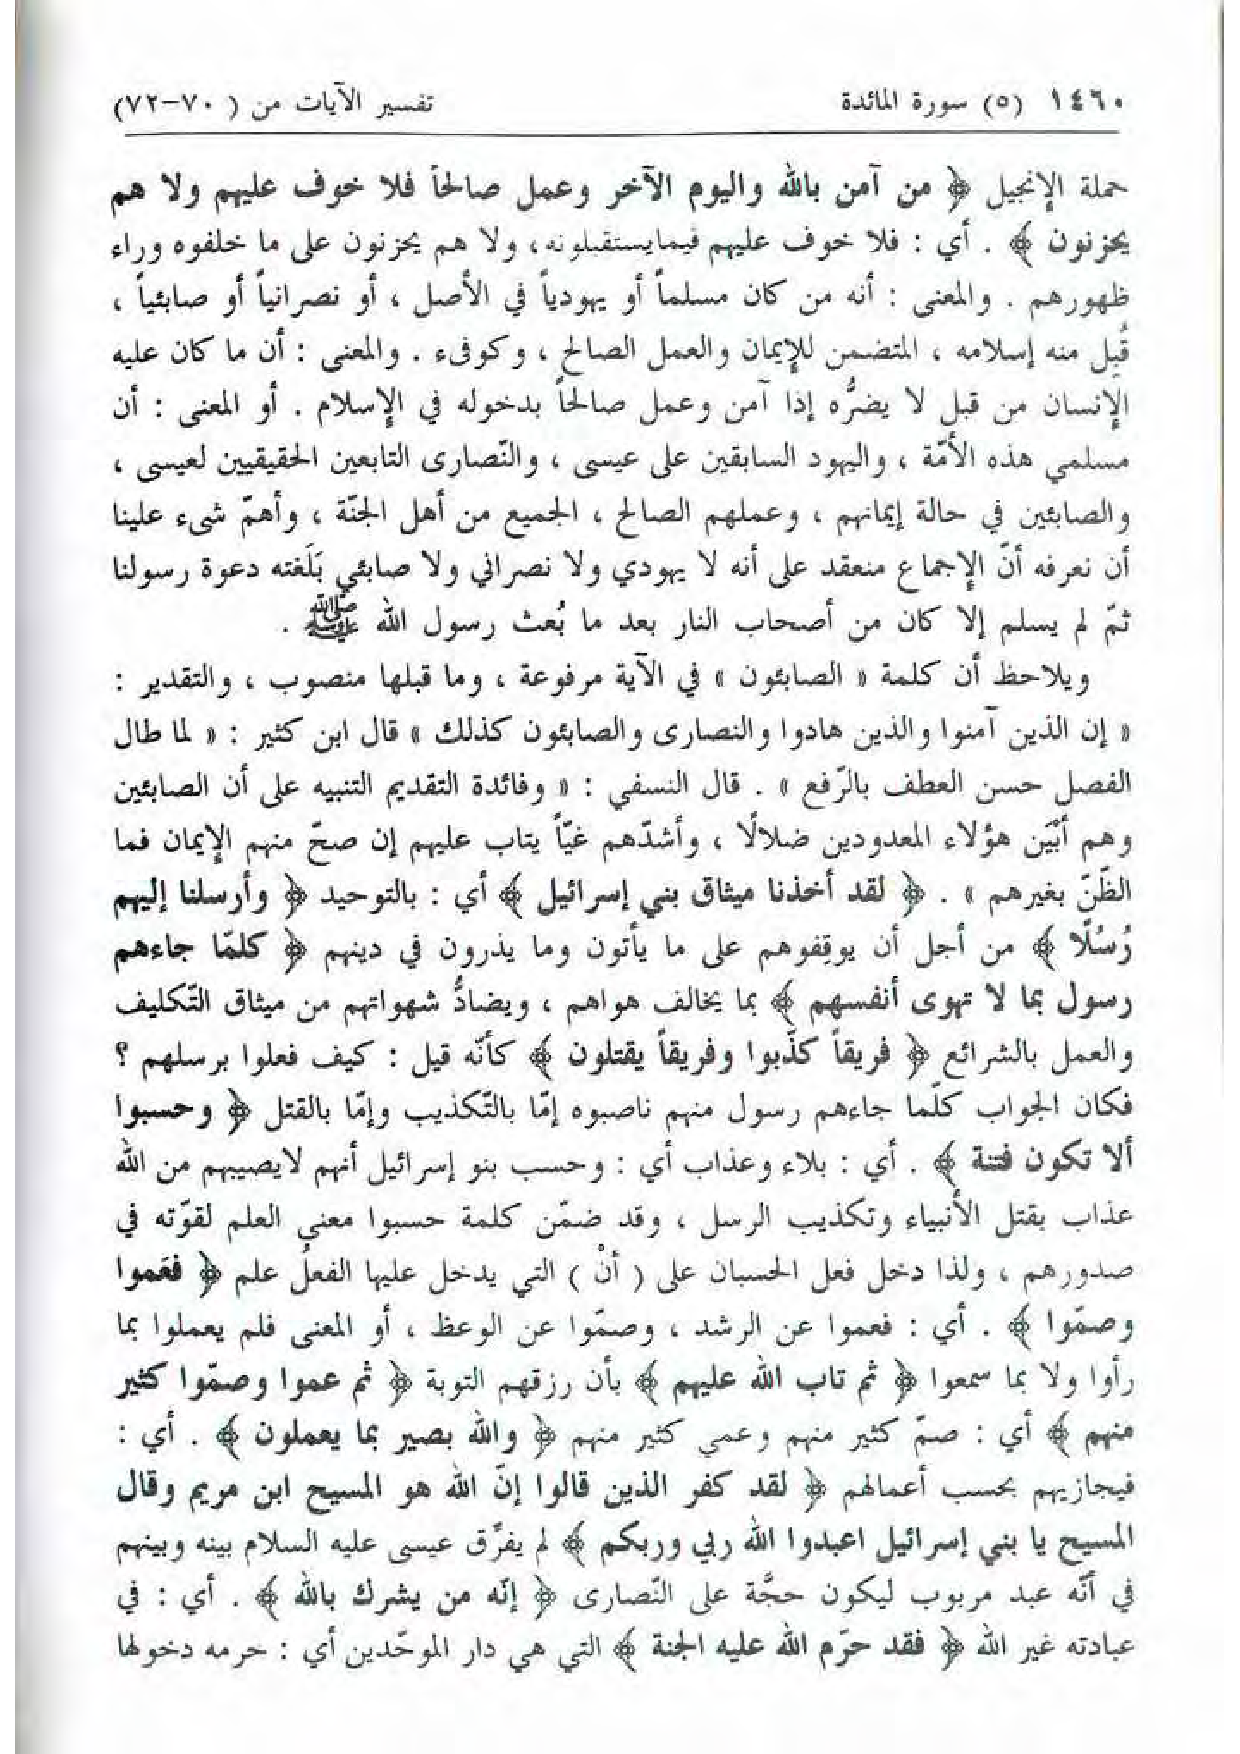 ١٤٦٠ (٥) سورة المائدة تفسير الآيات من ( ٧٠-٧٢)
حملة الإنجيل ﴿ من آمن بالله واليوم الآخر وعمل صالحاً فلا خوف عليهم ولا هم
يحزنون ﴾ . أي : فلا خوف عليهم فيما يستقبلونه ، ولا هم يحزنون على ما خلفوه وراء
ظهورهم . والمعنى : أنه من كان مسلماً أو يهودياً في الأصل ، أو نصرانياً أو صابئياً ،
قُبِل منه إسلامه ، المتضمن للإيمان والعمل الصالح ، وكوفىء . والمعنى : أن ما كان عليه
الإنسان من قبل لا يضرُّه إذا آمن وعمل صالحاً بدخوله في الإسلام . أو المعنى : أن
مسلمي هذه الأمّة ، واليهود السابقين على عيسى ، والنّصارى التابعين الحقيقيين لعيسى ،
والصابئين في حالة إيمانهم ، وعملهم الصالح ، الجميع من أهل الجنّة ، وأهمّ شيء علينا
أن نعرفه أنّ الإجماع منعقد على أنه لا يهودي ولا نصراني ولا صابئي بَلَغته دعوة رسولنا
ثمّ لم يسلم إلا كان من أصحاب النار بعد ما بُعث رسول الله ﷺ .
ويلاحظ أن كلمة « الصابئون » في الآية مرفوعة ، وما قبلها منصوب ، والتقدير :
« إن الذين آمنوا والذين هادوا والنصارى والصابئون كذلك » قال ابن كثير : « لما طال
الفصل حسن العطف بالرّفع » . قال النسفي : « وفائدة التقديم التنبيه على أن الصابئين
وهم أبْيَن هؤلاء المعدودين ضلالًا ، وأشدّهم غيّاً يتاب عليهم إن صحّ منهم الإيمان فما
الظّنّ بغيرهم » . ﴿ لقد أخذنا ميثاق بني إسرائيل ﴾ أي : بالتوحيد ﴿ وأرسلنا إليهم
رُسُلًا ﴾ من أجل أن يوقِفوهم على ما يأتون وما يذرون في دينهم ﴿ كلمّا جاءهم
رسول بما لا تهوى أنفسهم ﴾ بما يخالف هواهم ، ويضادُّ شهواتهم من ميثاق التّكليف
والعمل بالشرائع ﴿ فريقاً كذّبوا وفريقاً يقتلون ﴾ كأنّه قيل : كيف فعلوا برسلهم ؟
فكان الجواب كلّما جاءهم رسول منهم ناصبوه إمّا بالتّكذيب وإمّا بالقتل ﴿ وحسبوا
ألا تكون فتنة ﴾ . أي : بلاء وعذاب أي : وحسب بنو إسرائيل أنهم لايصيبهم من الله
عذاب بقتل الأنبياء وتكذيب الرسل ، وقد ضمّن كلمة حسبوا معنى العلم لقوّته في
صدورهم ، ولذا دخل فعل الحسبان على ( أنْ ) التي يدخل عليها الفعلُ علم ﴿ فعَموا
وصمّوا ﴾ . أي : فعموا عن الرشد ، وصمّوا عن الوعظ ، أو المعنى فلم يعملوا بما
رأوا ولا بما سمعوا ﴿ ثم تاب الله عليهم ﴾ بأن رزقهم التوبة ﴿ ثم عموا وصمّوا كثير
منهم ﴾ أي : صمّ كثير منهم وعمي كثير منهم ﴿ والله بصير بما يعملون ﴾ . أي :
فيجازيهم بحسب أعمالهم ﴿ لقد كفر الذين قالوا إنّ الله هو المسيح ابن مريم وقال
المسيح يا بني إسرائيل اعبدوا الله ربي وربكم ﴾ لم يفرِّق عيسى عليه السلام بينه وبينهم
في أنّه عبد مربوب ليكون حجَّة على النّصارى ﴿ إنّه من يشرك بالله ﴾ . أي : في
عبادته غير الله ﴿ فقد حرّم الله عليه الجنة ﴾ التي هي دار الموحّدين أي : حرمه دخولها